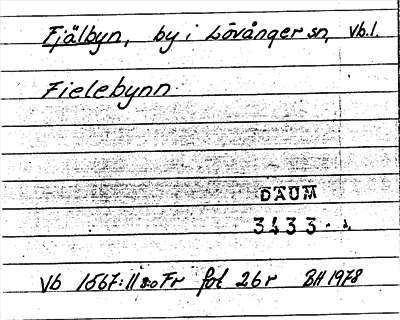 Fjälbyn, by i Lövånger sn, Vb.l.
Fielebynn
DAUM
3433
Vb 1567:11 8:o Fr fol 26r BH 1978